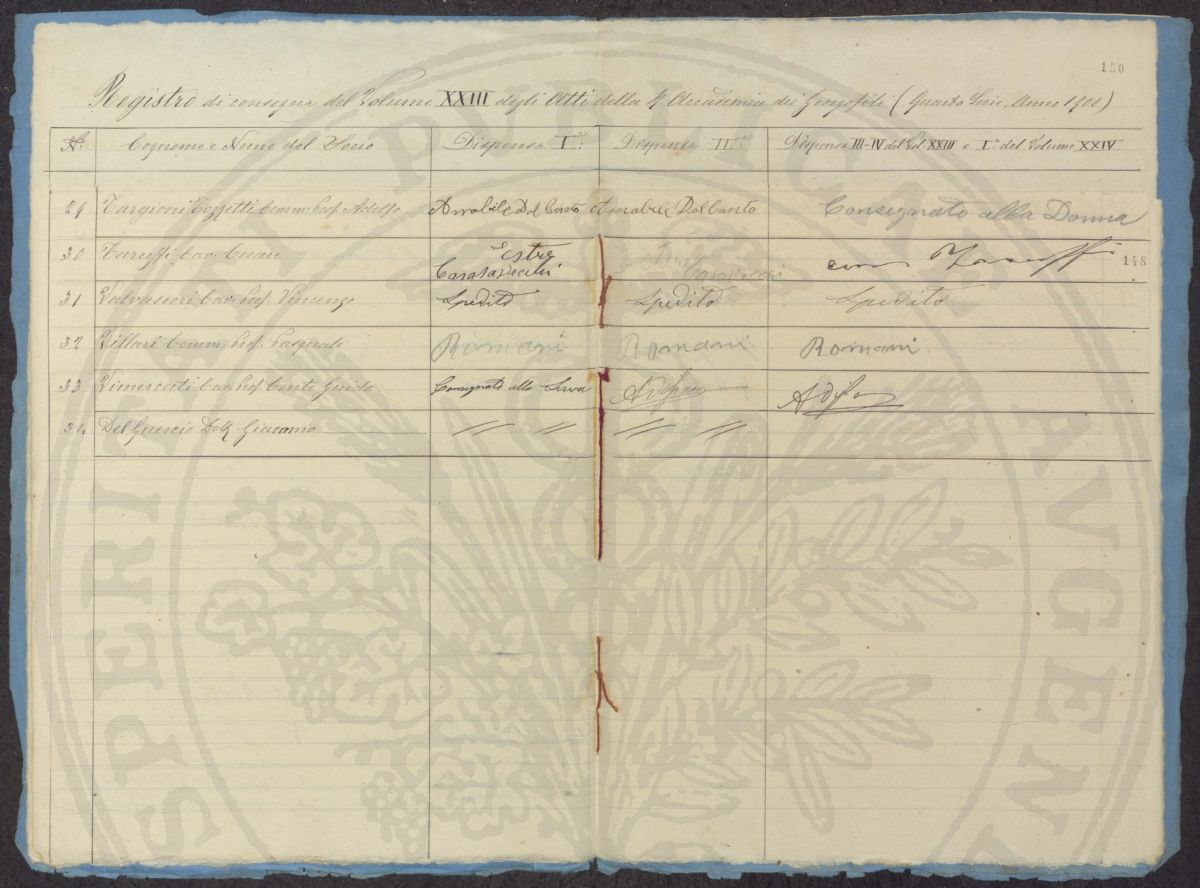 150
Registro di consegna del Volume XXIII degli Atti della R. Accademia dei Georgofili (Quarta Serie, Anno 1900)
N.° Cognome e Nome del Socio Dispensa Iª Dispensa IIª Dispensa III-IV del Vol. XXIII e Iª del Volume XXIV
29 Targioni Tozzetti Comm. Prof. Adolfo Amabile Dal Canto Amabile Dal Canto Consegnato alla Donna
30 Taruffi Cav. Cesare Estre Taruffi 148
31 Valvassori Cav. Prof. Vincenzo Spedito Spedito Spedito
32 Villari Comm. Prof. Pasquale Romani Romani Romani
33 Vimercati Cav. Prof. Conte Guido Consegnato alla Serva
34 Del Guercio Dott. Giacomo // // // //
SPERITATI PVBLICAE AVGEN